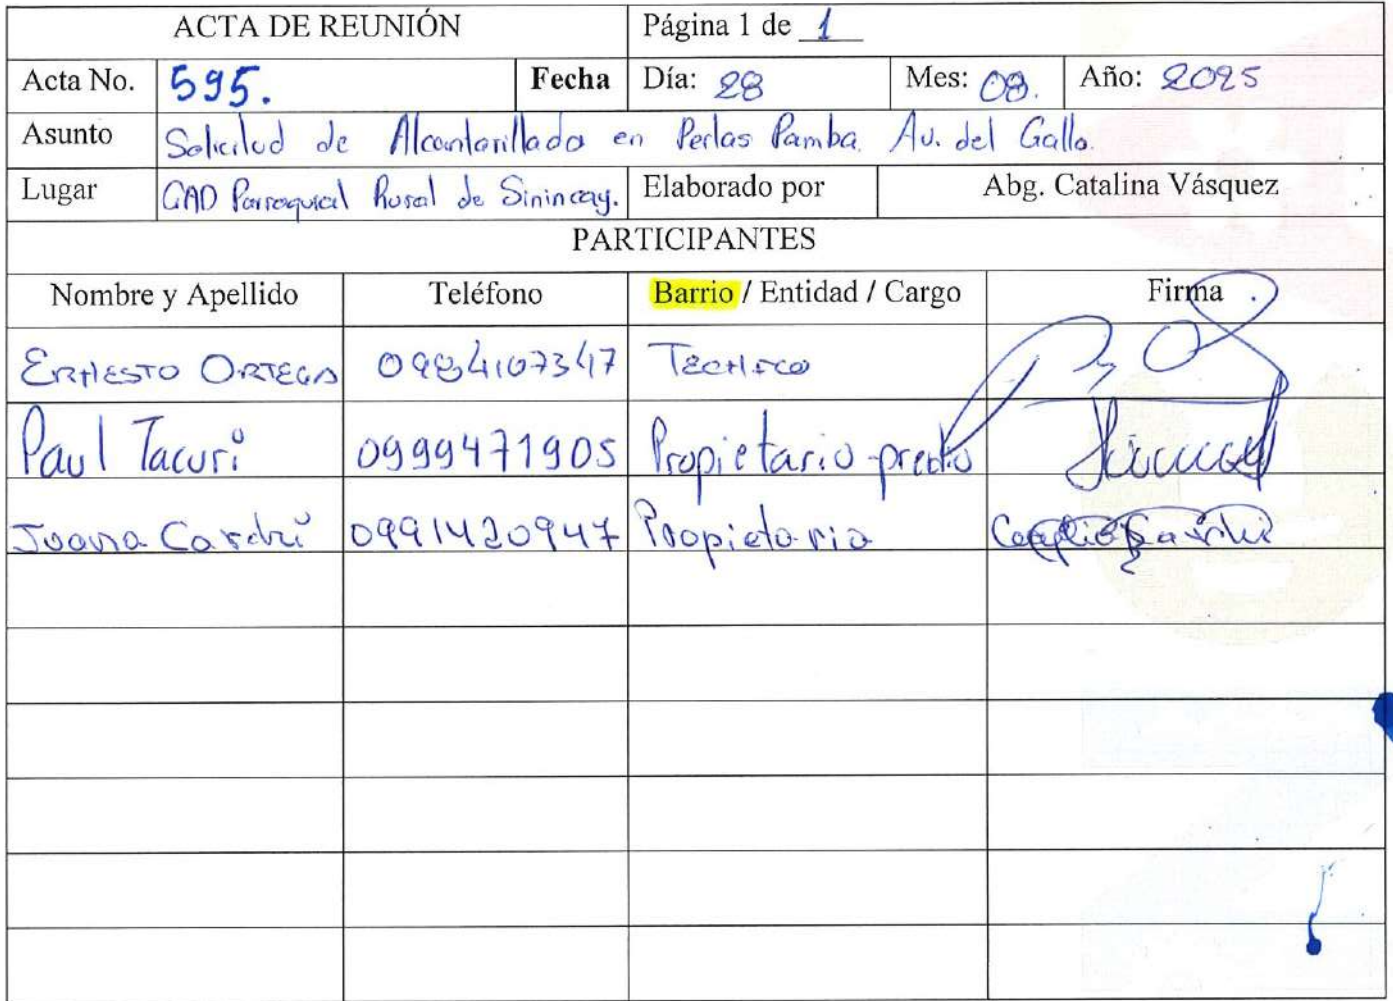 ACTA DE REUNIÓN Página 1 de 1
Acta No. 595. Fecha Día: 28 Mes: 08. Año: 2025
Asunto Solicitud de Alcantarillado en Perlas Pamba. Av. del Gallo.
Lugar GAD Parroquial Rural de Sinincay. Elaborado por Abg. Catalina Vásquez
PARTICIPANTES
Nombre y Apellido Teléfono Barrio / Entidad / Cargo Firma
ERNESTO ORTEGA 0984107347 TECNICO
Paul Tacuri 0999471905 Propietario predio
Joana 0991420947 Propietaria